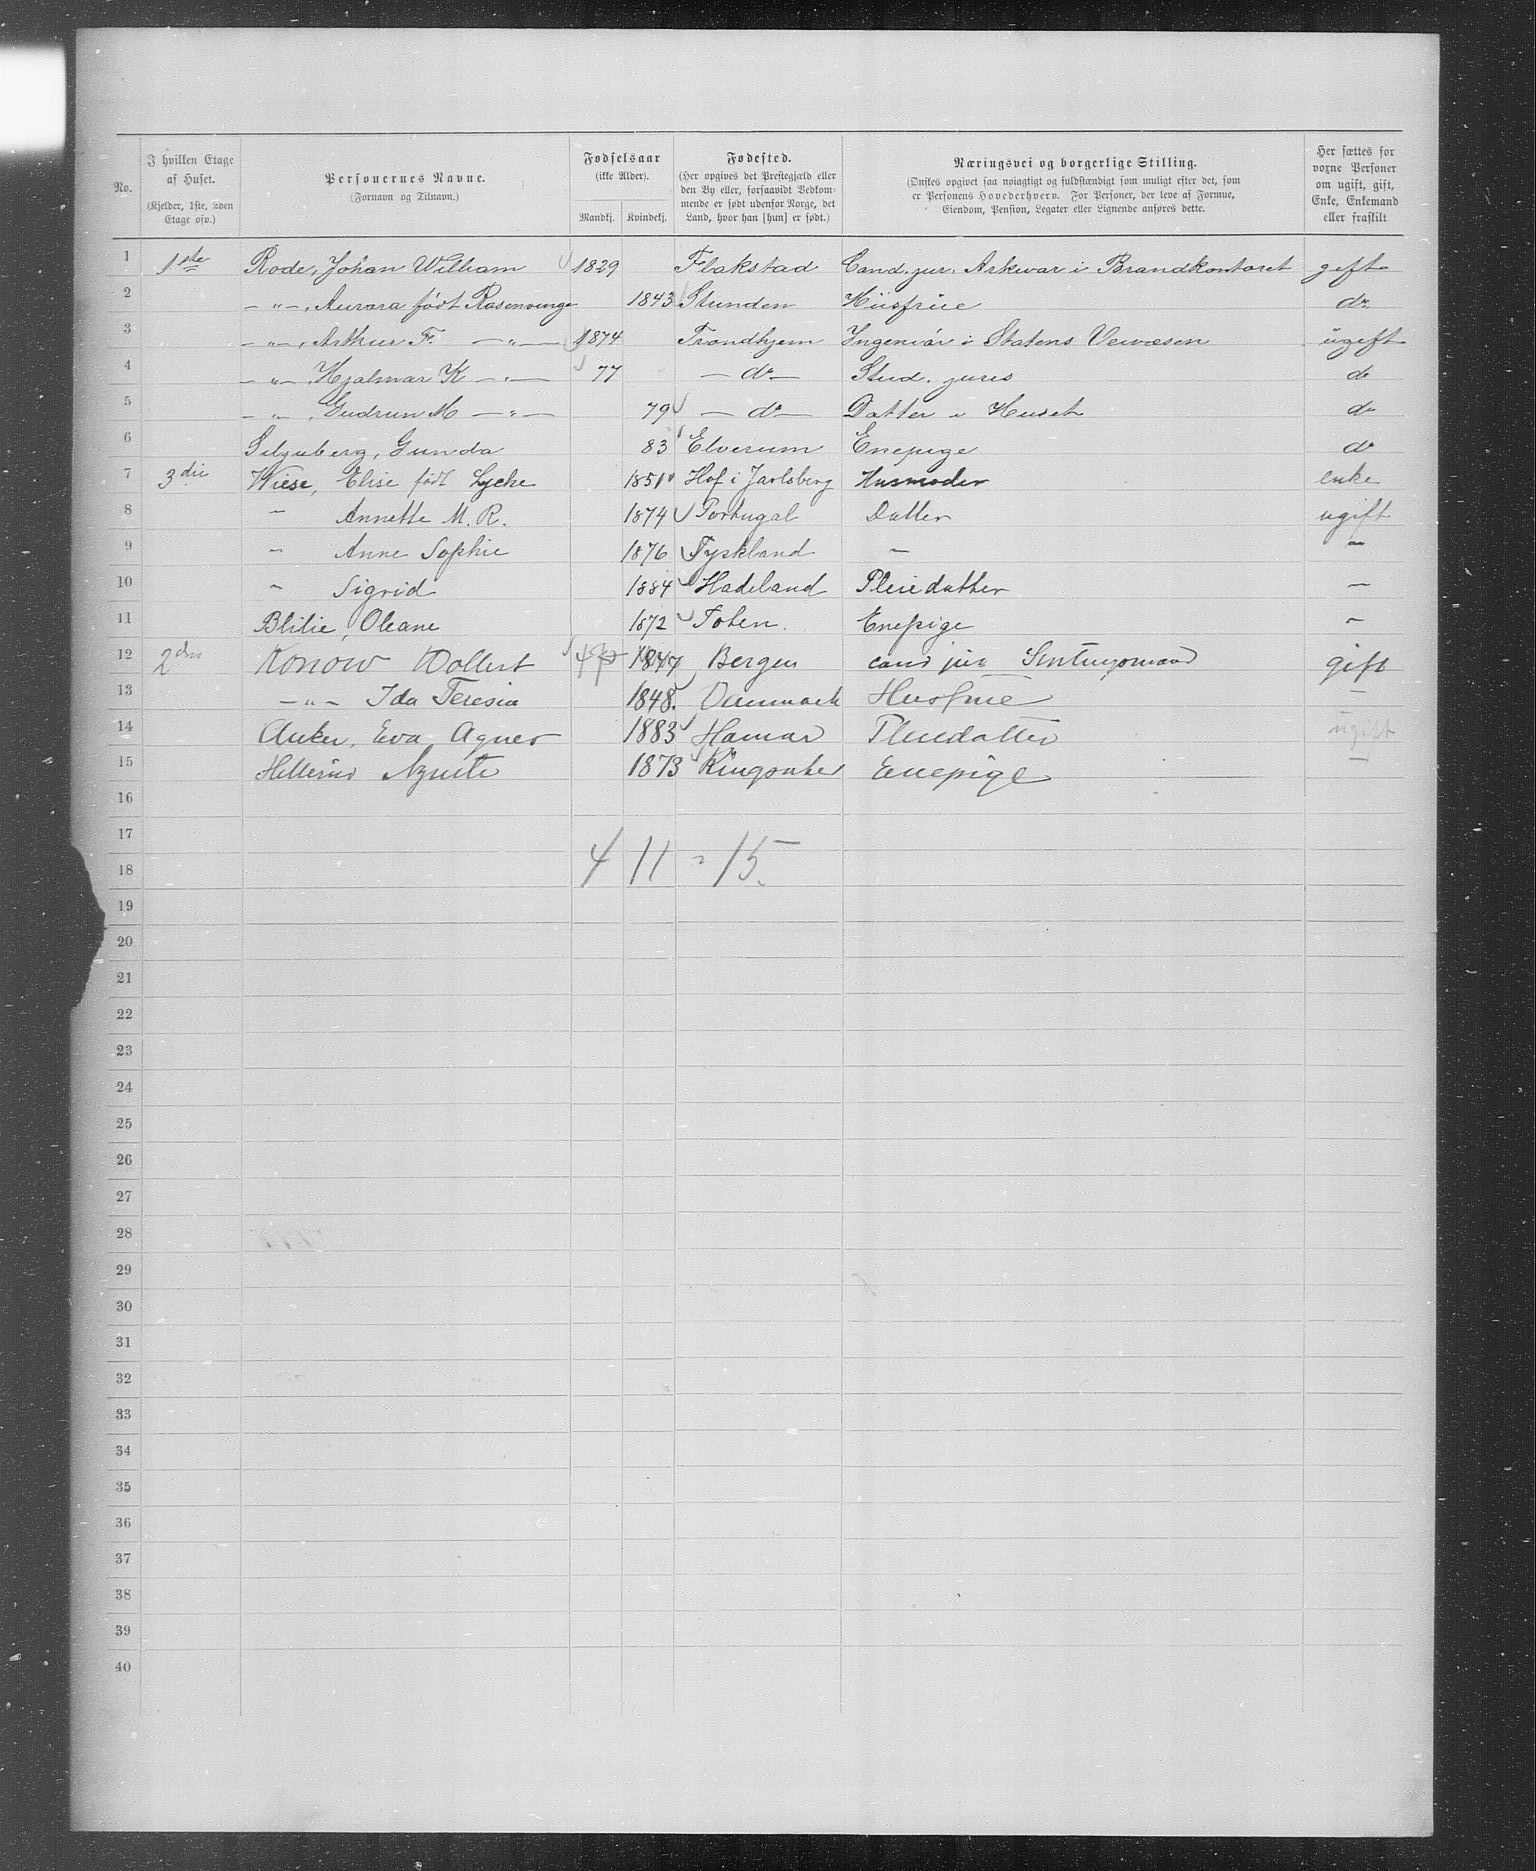 No.
I hvilken Etage af Huset. (Kjelder, 1ste, 2den Etage osv.)
Personernes Navne. (Fornavn og Tilnavn.)
Fødselsaar (ikke Alder). Mandkj. Kvindekj.
Fødested. (Her opgives det Prestegjæld eller den By eller, forsaavidt Vedkommende er født udenfor Norge, det Land, hvor han [hun] er født.)
Næringsvei og borgerlige Stilling. (Ønskes opgivet saa nøiagtigt og fuldstændigt som muligt efter det, som er Personens Hovederhverv. For Personer, der leve af Formue, Eiendom, Pension, Legater eller Lignende anføres dette.
Her sættes for voxne Personer om ugift, gift, Enke, Enkemand eller fraskilt
1 1ste Rode, Johan William 1829 Flakstad Cand. jur. Arkivar i Brandkontoret gift
2 — " —, Aurora født Rosenvinge 1843 Stunden Husfrue do
3 — " —, Arthur F. — " — 1874 Trondhjem Ingeniør i Statens Veivæsen ugift
4 — " —, Hjalmar K — " — 77 — do — Stud. juris do
5 — " —, Gudrun M — " — 79 — do — Datter i Huset do
6 Gunda 83 Elverum Enepige do
7 3die Wiese, Elise født Lyche 1851 Hof i Jarlsberg Husmoder enke
8 " Annette M. R. 1874 Portugal Datter ugift
9 " Anne Sophie 1876 Tyskland — —
10 " Sigrid 1884 Hadeland Pleiedatter —
11 Blilie, Oleane 1872 Toten. Enepige —
12 2den Konow Wollert 47 1847 Bergen cand jur gift
13 — " — Ida Teresia 1848. Danmark Husfrue —
14 Anker, Eva Agnes 1883 Hamar Pleiedatter ugift
15 1873 Ringsaker Enepige —
16
17
4 11 = 15.
18
19
20
21
22
23
24
25
26
27
28
29
30
31
32
33
34
35
36
37
38
39
40